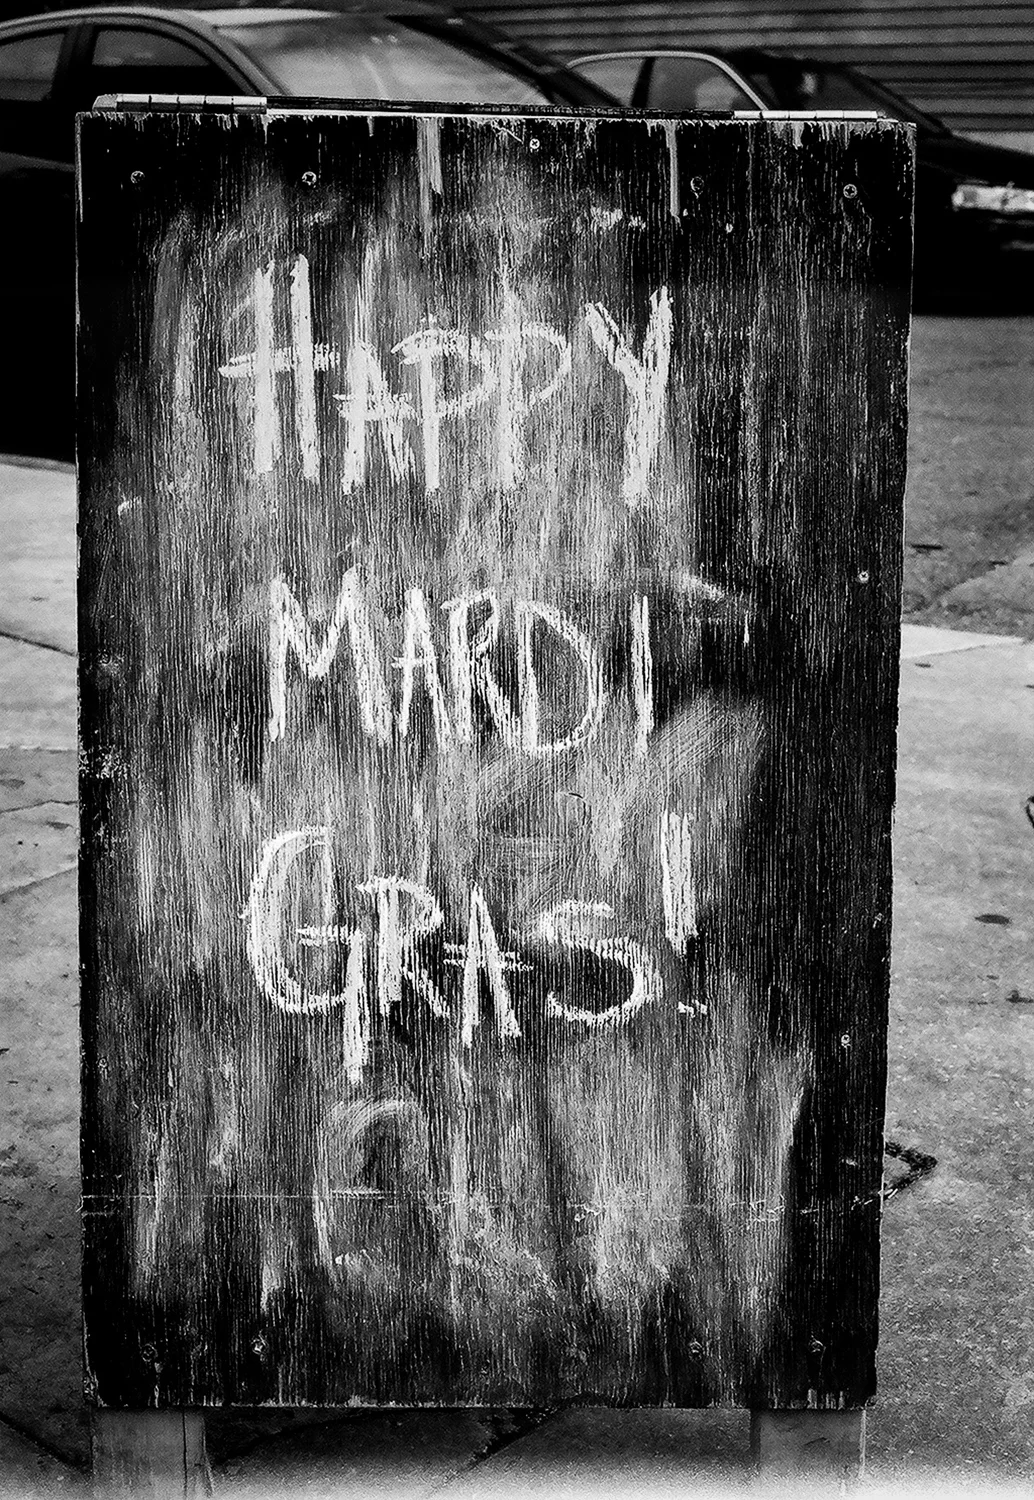 HAPPY
MARDI
GRAS!